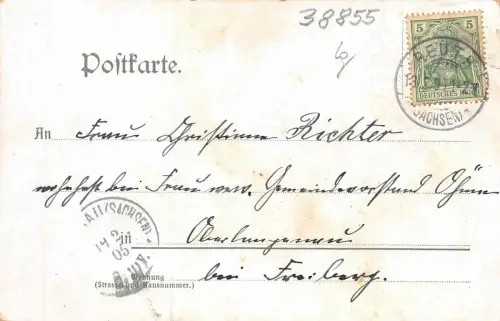 38855
5
Postkarte.
DEUTSCHES REICH
(SACHSEN)
An Frau Christiane Richter
wohnhaft bei Frau verw. Gemeindevorstand
(SACHSEN)
05
in Oberlangenau
bei Freiberg.
Wohnung
(Strasse und Hausnummer.)